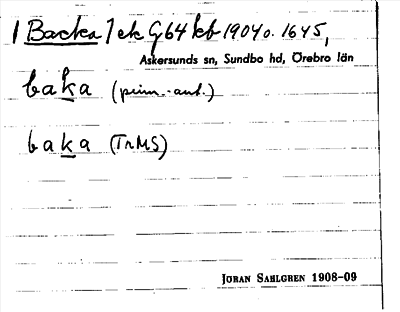 1 Backa 7 ek G64 kb 1904 o. 1645,
Askersunds sn, Sundbo hd, Örebro län
baka (prim.-ant.)
baka (TrMS)
JÖRAN SAHLGREN 1908-09